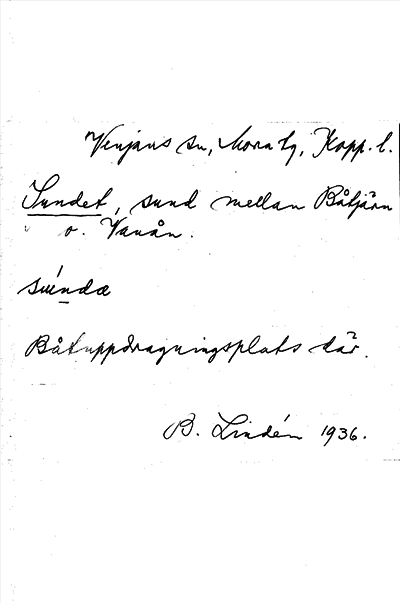 Venjans sn, Mora tg, Kopp. l.
Sundet, sund mellan Båtjärn
o. Vanån.
súndæ
Båtuppdragningsplats där.
B. Lindén 1936.